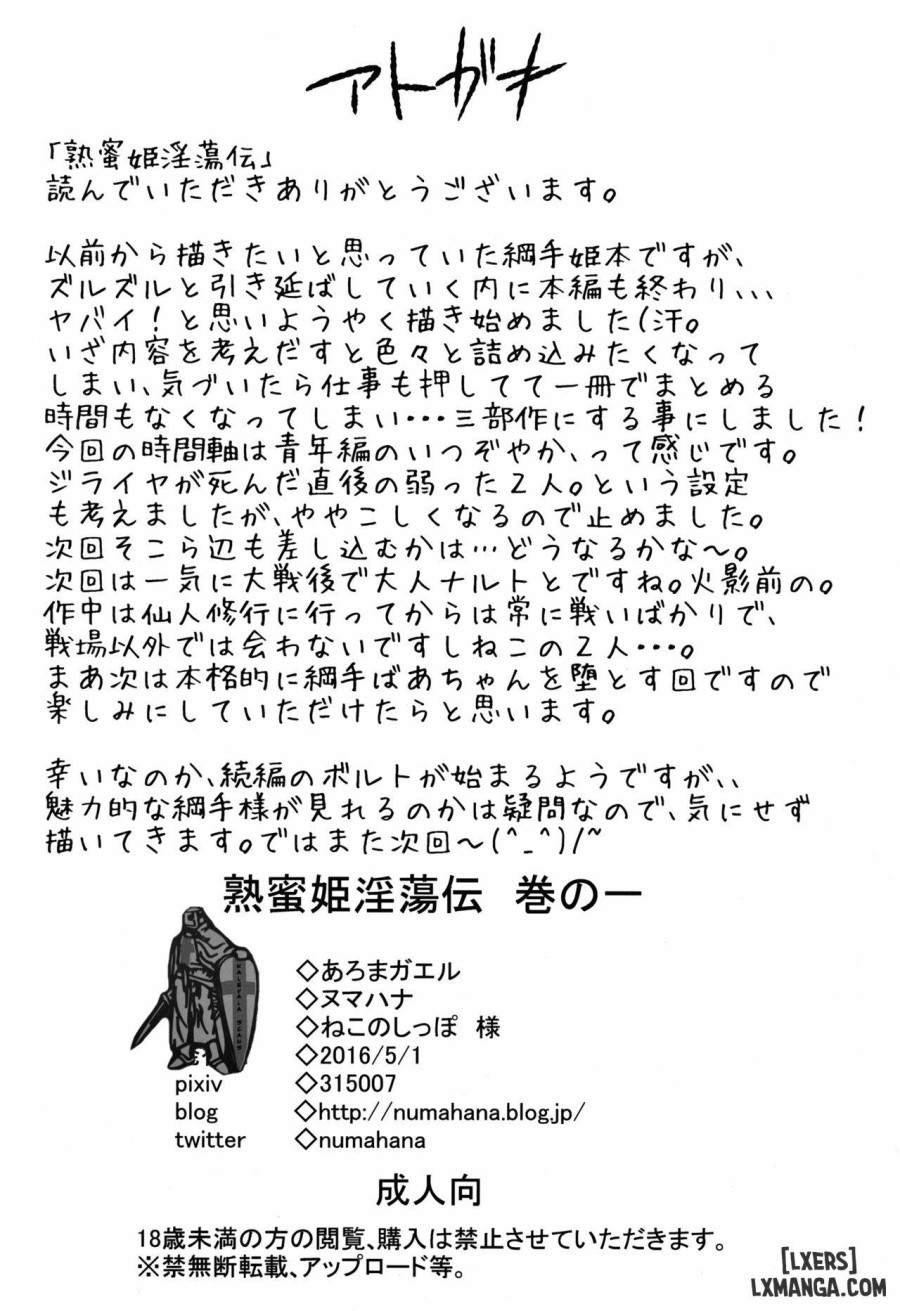 アトガキ
「熟蜜姫淫蕩伝」
読んでいただきありがとうございます。
以前から描きたいと思っていた綱手姫本ですが、
ズルズルと引き延ばしていく内に本編も終わり、、、
ヤバイ!と思いようやく描き始めました(汗。
いざ内容を考えだすと色々と詰め込みたくなって
しまい、気づいたら仕事も押してて一冊でまとめる
時間もなくなってしまい・・・三部作にする事にしました!
今回の時間軸は青年編のいつぞやか、って感じです。
ジライヤが死んだ直後の弱った2人。という設定
も考えましたが、ややこしくなるので止めました。
次回そこら辺も差し込むかは…どうなるかな〜。
次回は一気に大戦後で大人ナルトとですね。火影前の。
作中は仙人修行に行ってからは常に戦いばかりで、
戦場以外では会わないですしねこの2人・・・。
まあ次は本格的に綱手ばあちゃんを堕とす回ですので
楽しみにしていただけたらと思います。
幸いなのか、続編のボルトが始まるようですが、、
魅力的な綱手様が見れるのかは疑問なので、気にせず
描いてきます。ではまた次回〜(^_^)/~
熟蜜姫淫蕩伝 巻の一
◇あろまガエル
◇ヌマハナ
◇ねこのしっぽ 様
◇2016/5/1
pixiv ◇315007
blog ◇http://numahana.blog.jp/
twitter ◇numahana
成人向
18歳未満の方の閲覧、購入は禁止させていただきます。
※禁無断転載、アップロード等。
[LXERS]
LXMANGA.COM